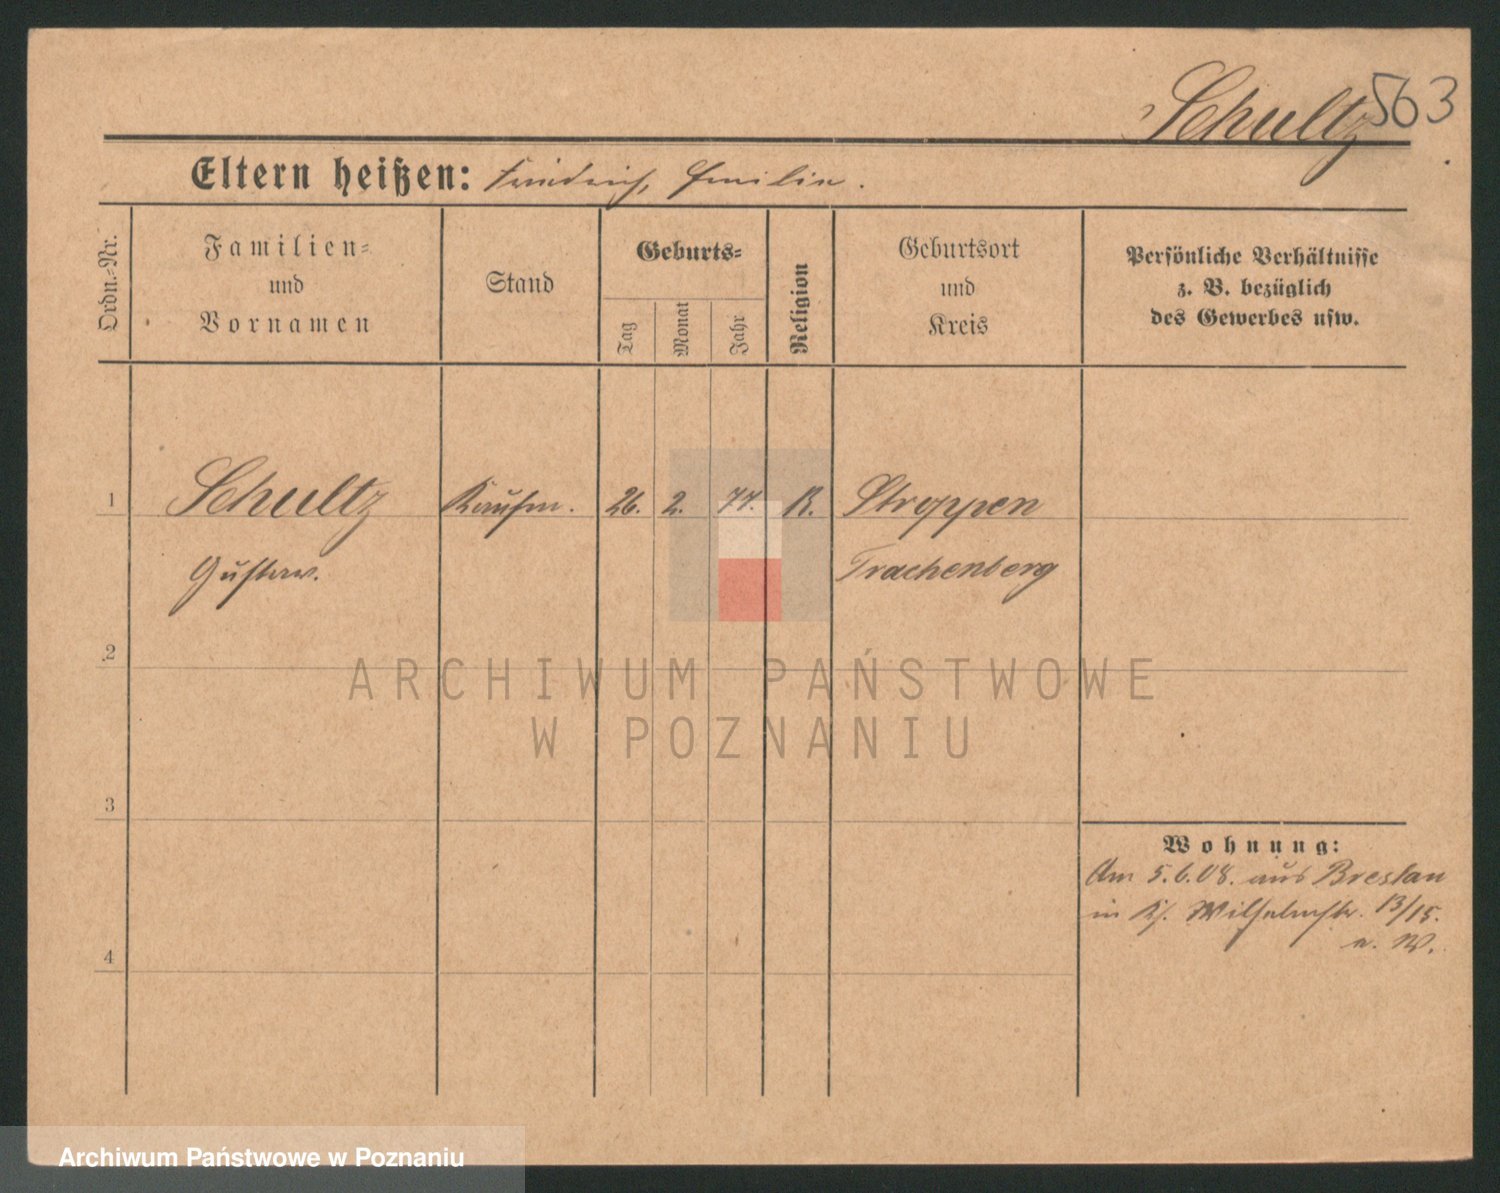 Schultz
563
Eltern heißen: Friedrich, Emilie.
Ordn.-Nr.
Familien-
und
Vornamen
Stand
Geburts-
Tag
Monat
Jahr
Religion
Geburtsort
und
Kreis
Persönliche Verhältnisse
z. B. bezüglich
des Gewerbes usw.
1 Schultz Kaufm. 26. 2. 77. K. Stroppen
Gustav. Trachenberg
2
ARCHIWUM PAŃSTWOWE
W POZNANIU
3
Wohnung:
Am 5.6.08. aus Breslau
in Wilhelmstr. 13/15.
4
Archiwum Państwowe w Poznaniu